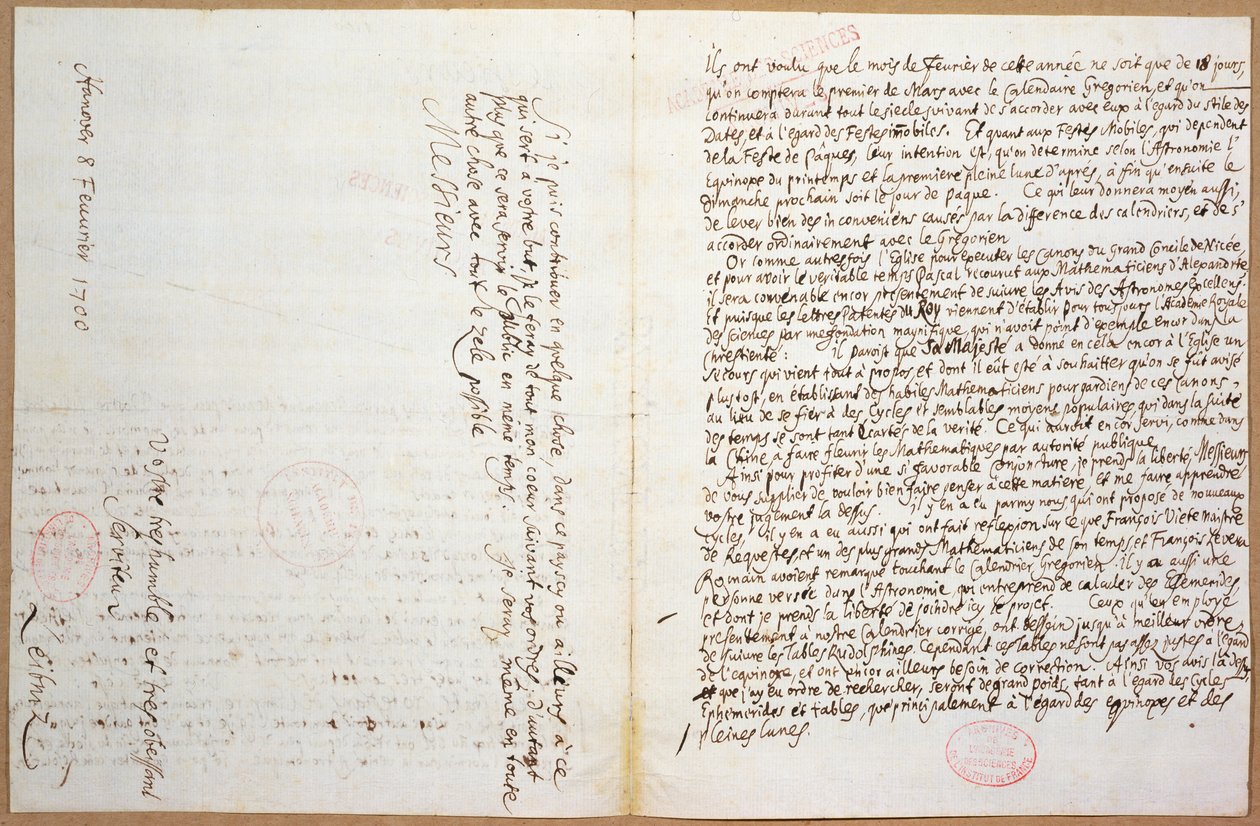 Ils ont voulu que le mois de Fevrier de cette année ne soit que de 18 jours,
qu'on comptera le premier de Mars avec le Calendaire Gregorien, et qu'on
continuera durant tout le siecle suivant de s'accorder avec eux à l'egard du stile des
Dates, et à l'egard des Festes immobiles. Et quant aux Festes Mobiles, qui dependent
de la Feste de Pâques, leur intention est, qu'on determine selon l'Astronomie l'
Equinoxe du printemps et la premiere pleine lune d'aprés, à fin qu'ensuite le
dimanche prochain soit le jour de Paque. Ce qui leur donnera moyen aussi,
de lever bien des inconveniens causés par la difference des calendriers, et de s'
accorder ordinairement avec le Gregorien
Or comme autres fois l'Eglise pour executer les Canons du grand Concile de Nicée,
et pour avoir le veritable temps Pascal recourut aux Mathematiciens d'Alexandrie
il sera convenable encor presentement de suivre les Avis des Astronomes Excellens.
Et puisque les lettres Patentes du Roy viennent d'établir pour tousjours l'Academie Royale
des Sciences par une fondation magnifique, qui n'avoit point d'exemple encor dans la
Chrestienté: il paroist que Sa Majesté a donné en cela encor à l'Eglise un
secours qui vient tout à propos, et dont il eût esté à souhaitter qu'on se fût avisé
plus tost, en établissant des habiles Mathematiciens pour gardiens de ces Canons,
au lieu de se fier à des Cycles et semblables moyens populaires, qui dans la suite
des temps se sont tant écartés de la verité. Ce qui auroit encor servi, comme dans
la Chine, à faire fleurir les Mathematiques par autorité publique
Ainsi pour profiter d'une si favorable Conjoncture, je prends la liberté, Messieurs
de vous supplier de vouloir bien faire penser à cette matiere, et me faire apprendre
vostre jugement la dessus. Il y en a eu parmy nous qui ont proposé de nouveaux
Cycles, il y en a eu aussi qui ont fait reflexion sur ce que François Viete Maistre
de Requestes, et un des plus grands Mathematiciens de son temps et François Levera
Romain avoient remarqué touchant le Calendrier Gregorien. Il y a aussi une
personne versée dans l'Astronomie, qui entreprend de calculer des Ephemerides,
et dont je prends la liberté de joindre icy le projet. Ceux qu'on employe
presentement à nostre Calendrier corrigé, ont dessein jusqu'à meilleur ordre,
de suivre les Tables Rudolphines. Cependant ces Tables ne sont pas assez justes à l'egard
de l'equinoxe, et ont d'ailleurs besoin de correction. Ainsi vos avis là dessus
que j'ay eu ordre de rechercher, seront de grand poids, tant à l'egard des Cycles
Ephemerides et tables, que principalement à l'egard des equinoxes et des
pleines lunes.
Si je puis contribuer en quelque chose, dans ce pays cy ou ailleurs à ce
qui sert à vostre but, je le feray de tout mon coeur suivant vos ordres; d'autant
plus que ce sera servir le public en même temps. Je seray même en toute
autre chose avec tout le zele possible
Messieurs
Vostre tres humble et tres obeissant
Serviteur
Leibniz
Hanover 8 Feuvrier 1700
ACADEMIE DES SCIENCES
ARCHIVES
DE
L'ACADEMIE
DES SCIENCES
DE L'INSTITUT DE FRANCE